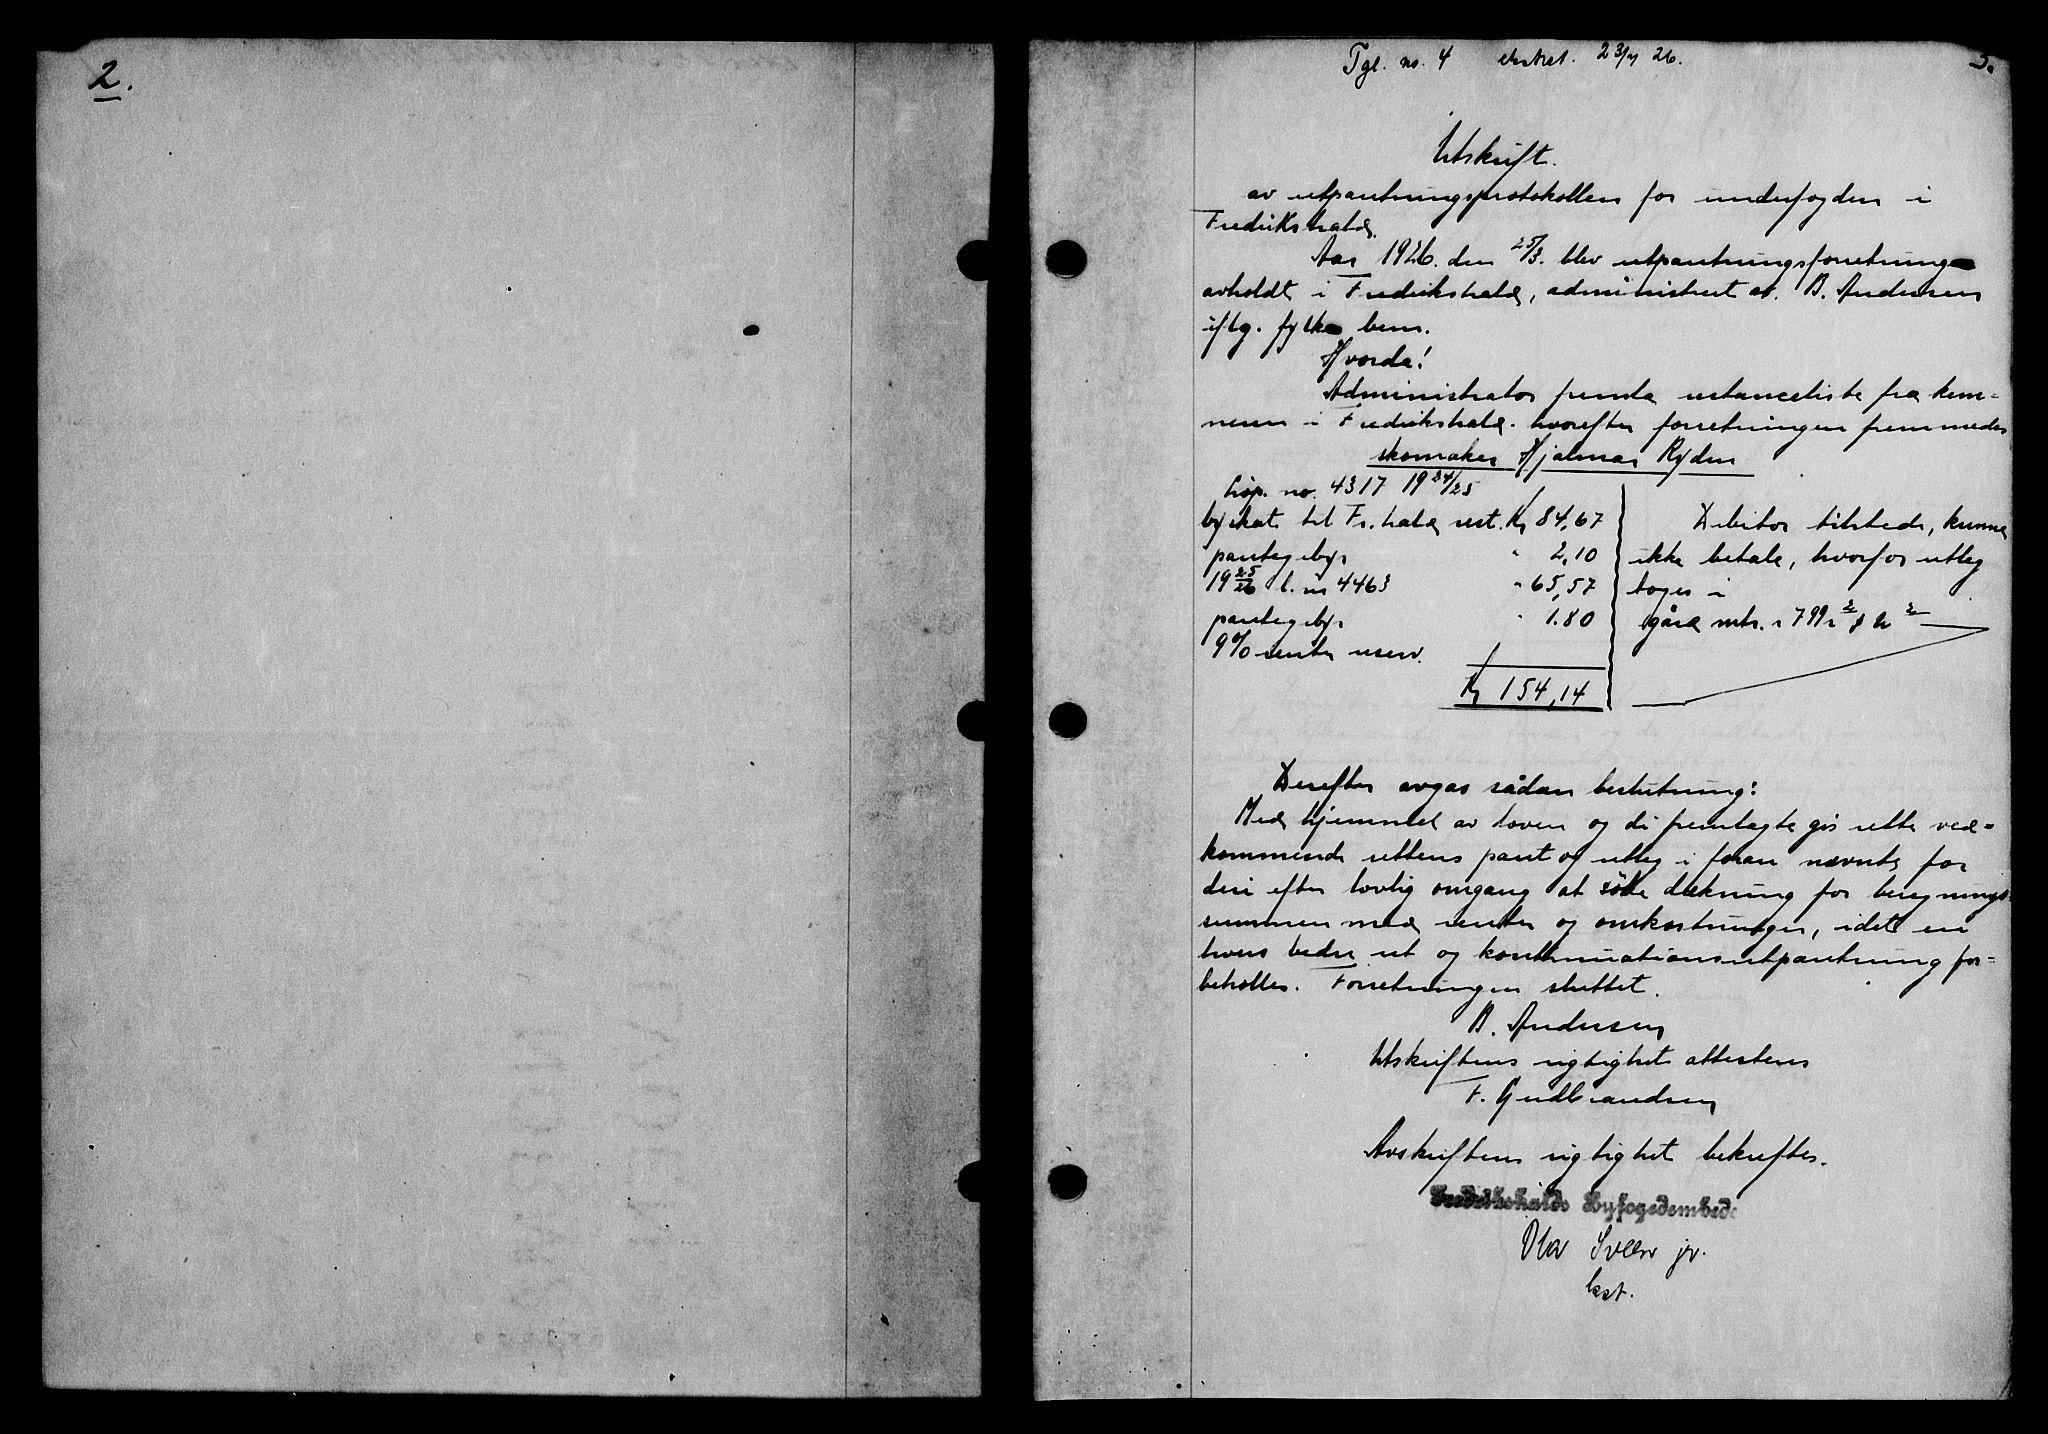 2.
Tgl. no. 4 ekstrakt. 23/7 26.
3.
Utskrift.
av utpantningsprotokollen for underfogden i
Fredrikshald.
Aar 1926. den 25/3. blev utpantningsforretning
avholdt i Fredrikshald, administrert av B. Andersen
iflg. fylk bem.
Hvorda!
Administrator fremla restanceliste fra kem-
neren i Fredrikshald. hvorefter forretningen fremmedes
skomaker Hjalmar Ryden
Løp. no. 4317 19 24/25
byskat til Fr.hald rest. Kr 84,67
pantegebyr " 2,10
19 25/26 l. nr 4463 " 65,57
pantegebyr " 1.80
9% renter reserv.
Kr 154,14
Debitor tilstede, kunne
ikke betale, hvorfor utleg
toges i
gård mtr. 799
Derefter avgas sådan beslutning:
Med hjemmel av loven og di fremlagte gis rette ved-
kommende rettens pant og utleg i foran nævnte, for
deri efter lovlig omgang at søke dækning for beregnings-
summen med renter og omkostninger, idet en
hvers bedre ret og kontinuationsutpantning for-
beholdes. Forretningen sluttet.
B. Andersen
Utskriftens rigtighet attesteres
F. Gudbrandsen
Avskriftens rigtighet bekreftes.
Fredrikshalds Byfogedembede
Olav Sveen jr.
kst.